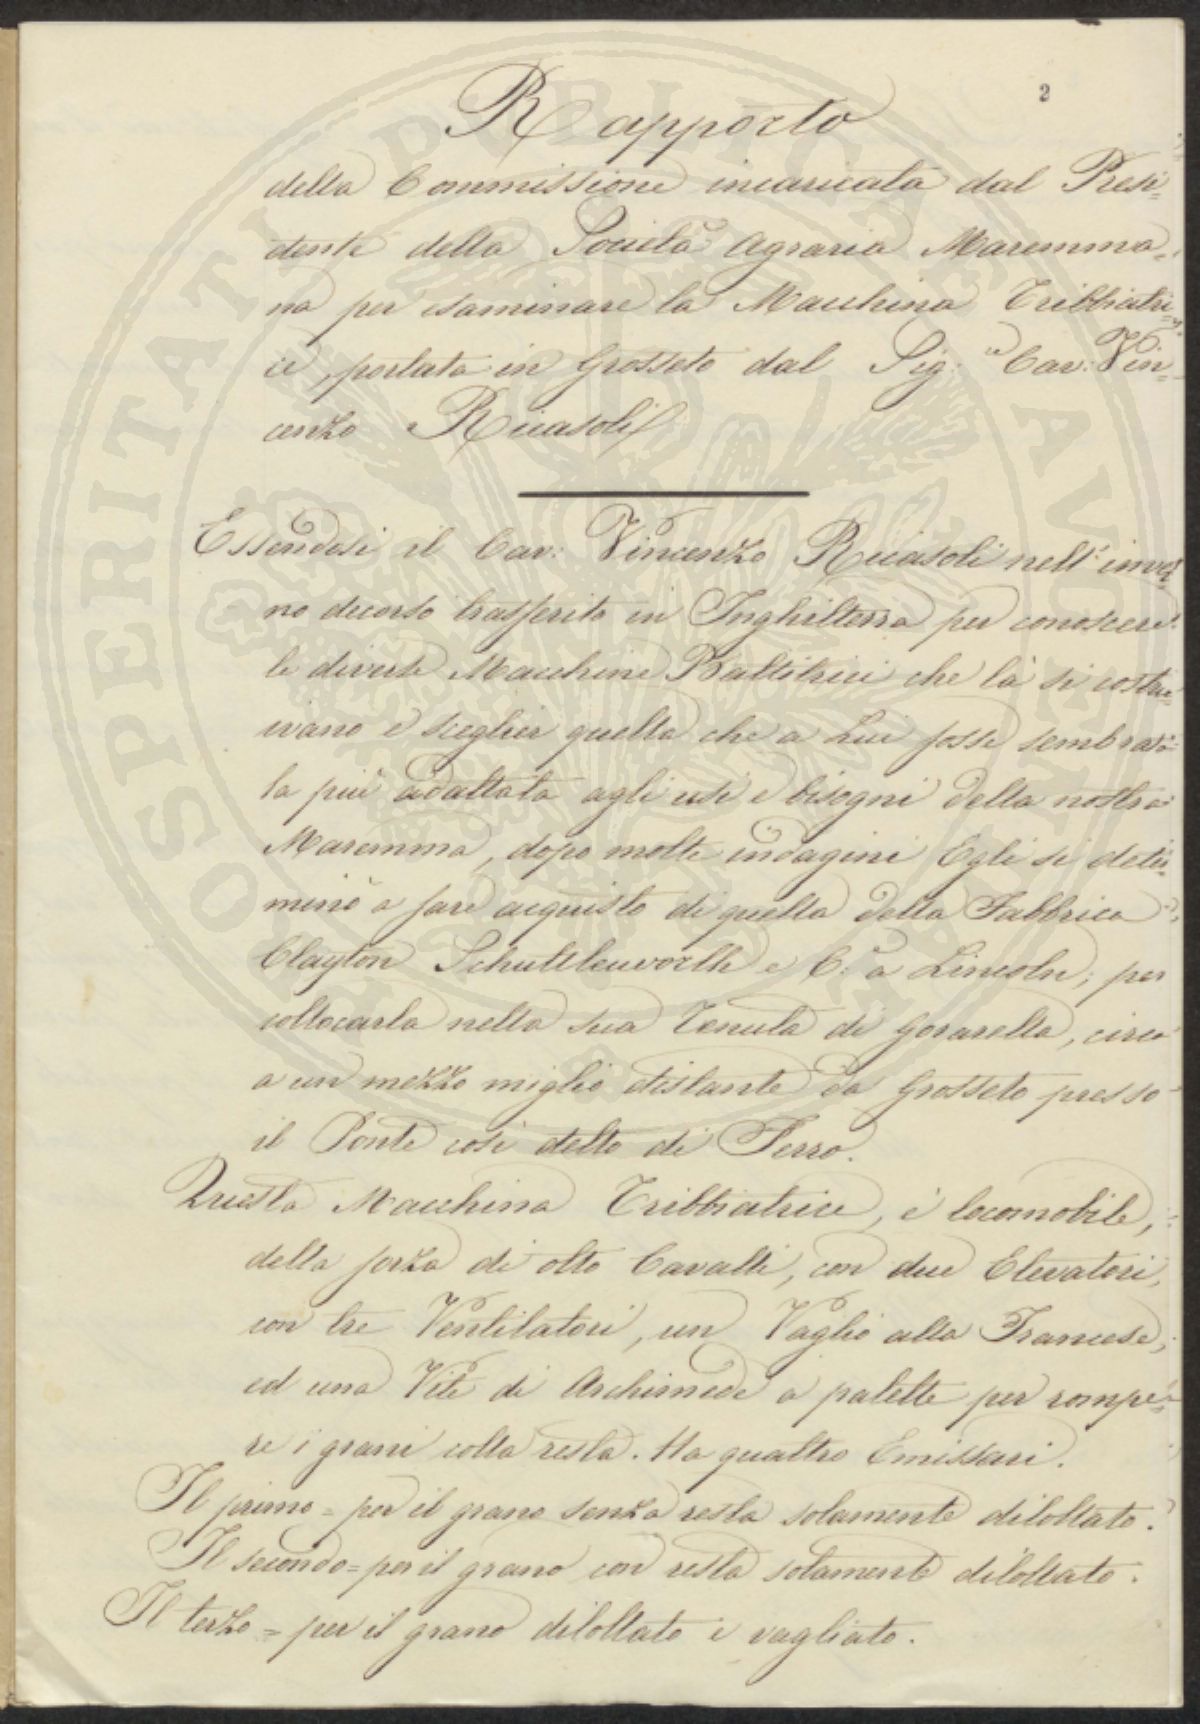 2
Rapporto
della Commissione incaricata dal Presi=
dente della Società Agraria Maremma=
na per esaminare la Macchina Tribbiatri=
ce, portata in Grosseto dal Sig:re Cav: Vin=
cenzo Ricasoli
Essendosi il Cav: Vincenzo Ricasoli nell'inver=
no decorso trasferito in Inghilterra per conoscere
le diverse Macchine Battitrici che là si costru=
ivano e sceglier quella che a Lui fosse sembrata
la più adattata agli usi e bisogni della nostra
Maremma, dopo molte indagini Egli si deter=
minò a fare acquisto di quella della Fabbrica
Clayton Schuttleuworth e C:a a Lincoln; per
collocarla nella sua Tenuta di Gorarella, circa
a un mezzo miglio distante da Grosseto presso
il Ponte così detto di Ferro.
Questa Macchina Tribbiatrice, è locomobile,
della forza di otto Cavalli, con due Elevatori,
con tre Ventilatori, un Vaglio alla Francese,
ed una Vite di Archimede a palette per rompe=
re i grani colla resta. Ha quattro Emissari.
Il primo = per il grano senza resta solamente dilollato.
Il secondo = per il grano con resta solamente dilollato.
Il terzo = per il grano dilollato e vagliato.
PROSPERITATI PUBLICAE AUGENDAE